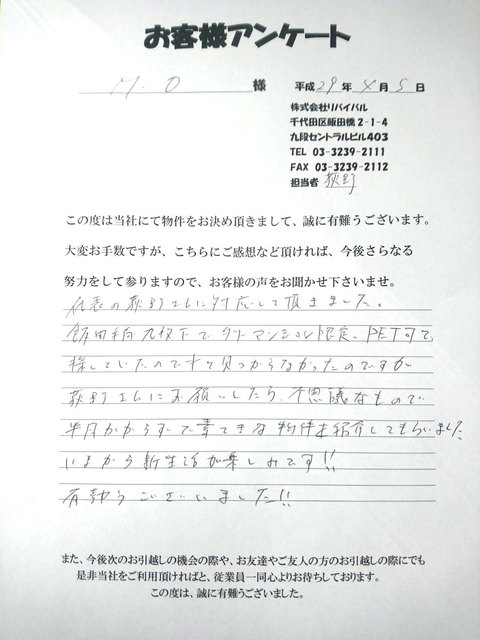 お客様アンケート
M.O 様 平成29年4月5日
株式会社リバイバル
千代田区飯田橋2-1-4
九段セントラルビル403
TEL 03-3239-2111
FAX 03-3239-2112
担当者 荻野
この度は当社にて物件をお決め頂きまして、誠に有難うございます。
大変お手数ですが、こちらにご感想など頂ければ、今後さらなる
努力をして参りますので、お客様の声をお聞かせ下さいませ。
代表の荻野さんに対応して頂きました。
飯田橋 九段下で タワーマンション限定、PET可で
探していたので中々見つからなかったのですが
荻野さんにお願いしたら、不思議なもので
半月かからずで素てきな物件を紹介してもらいました
いまから新生活が楽しみです!!
有難うございました!!
また、今後次のお引越しの機会の際や、お友達やご友人の方のお引越しの際にでも
是非当社をご利用頂ければと、従業員一同心よりお待ちしております。
この度は、誠に有難うございました。